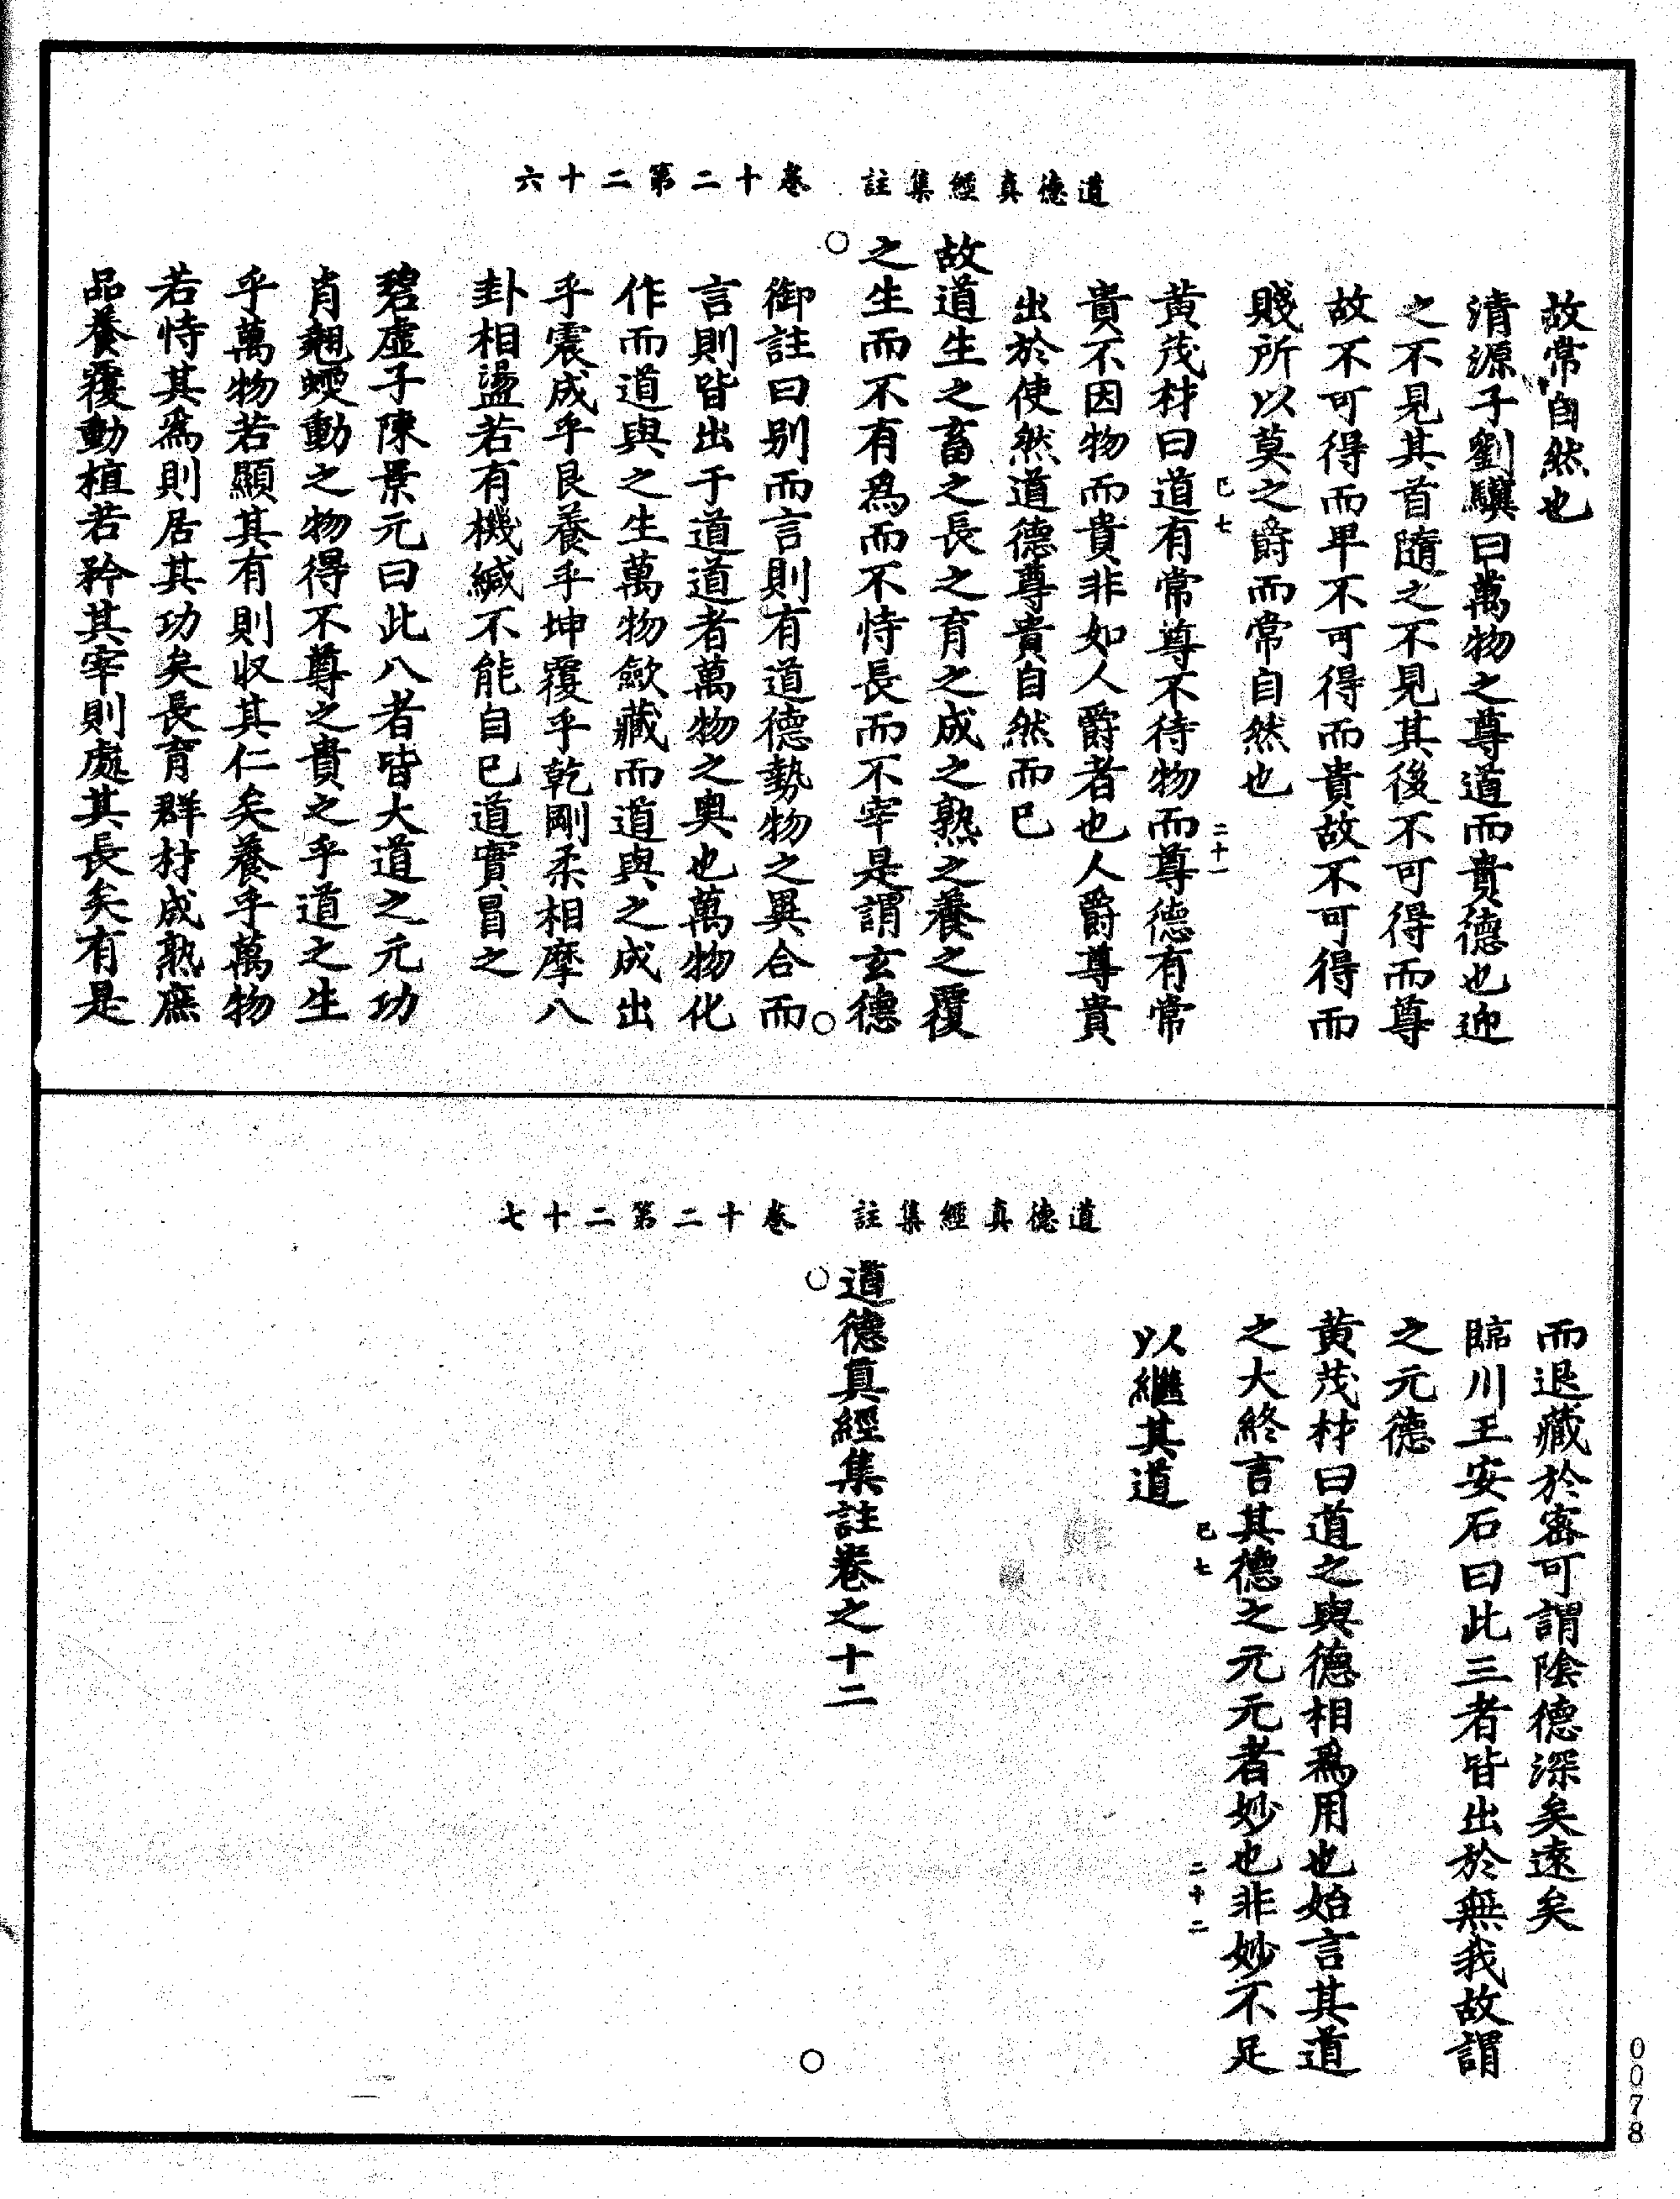 道德真經集註　卷十二第二十六
故常自然也
清源子劉驥曰萬物之尊道而貴德也迎
之不見其首隨之不見其後不可得而尊
故不可得而卑不可得而貴故不可得而
賤所以莫之爵而常自然也
己七　二十一
黃茂材曰道有常尊不待物而尊德有常
貴不因物而貴非如人爵者也人爵尊貴
出於使然道德尊貴自然而已
故道生之畜之長之育之成之熟之養之覆
之生而不有爲而不恃長而不宰是謂玄德
御註曰别而言則有道德勢物之異合而
言則皆出于道道者萬物之奥也萬物化
作而道與之生萬物斂藏而道與之成出
乎震成乎艮養乎坤覆乎乾剛柔相摩八
卦相盪若有機緘不能自已道實冒之
碧虛子陳景元曰此八者皆大道之元功
肖翹蝡動之物得不尊之貴之乎道之生
乎萬物若顯其有則収其仁矣養乎萬物
若恃其爲則居其功矣長育群材成熟庶
品養覆動植若矜其宰則處其長矣有是
道德真經集註　卷十二第二十七
而退藏於密可謂陰德深矣遠矣
臨川王安石曰此三者皆出於無我故謂
之元德
黃茂材曰道之與德相爲用也始言其道
之大終言其德之元元者妙也非妙不足
以繼其道
己七　二十二
道德真經集註卷之十二
0078